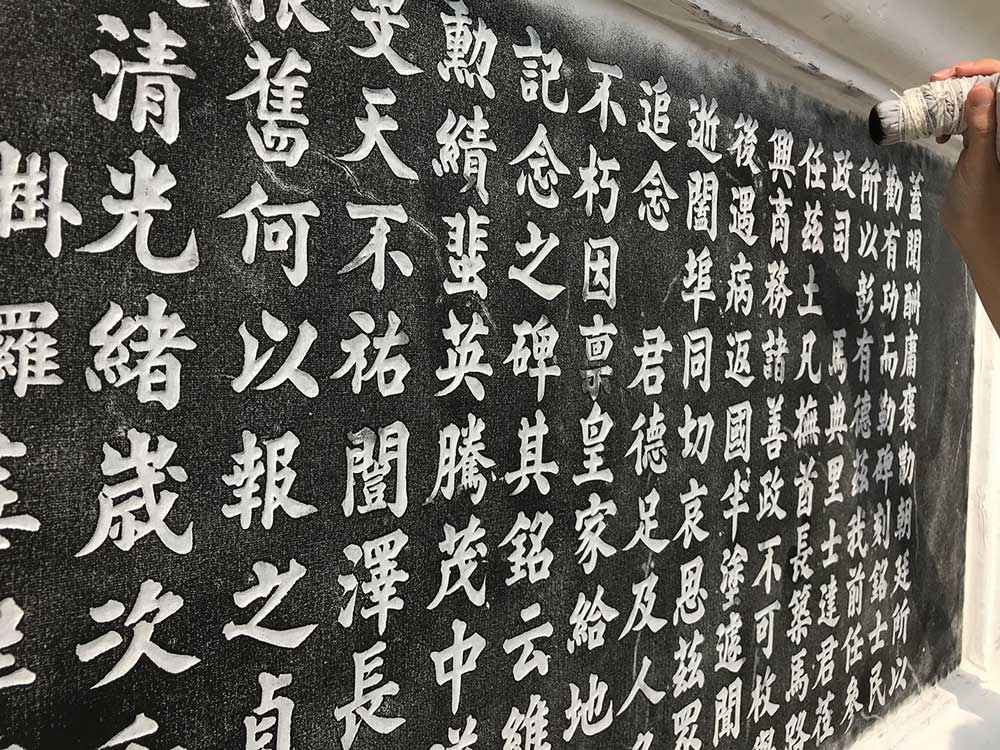 蓋聞酬庸褒勳朝廷所以
勸有功而勒碑刻銘士民
所以彰有德茲我前任參
政司 馬典里士達君蒞
任茲土凡撫首長築馬路
興商務諸善政不可枚
後遇病返國半塗遽聞
逝闔埠同切哀思茲眾
追念 君德足及人
不朽因禀皇家給地
記念之碑其銘云維
勳績蜚英騰茂中
旻天不祐闓澤長
舊何以報之貞
清光緒歲次
掛 羅